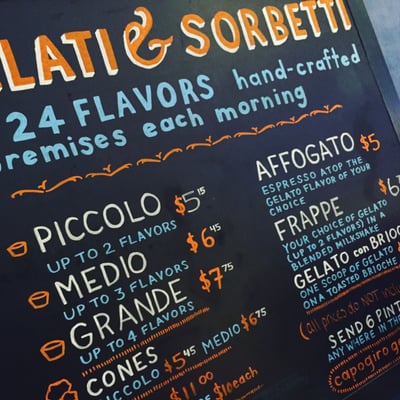 & SORBETTI
24 FLAVORS hand-crafted
each morning
PICCOLO $5.15
UP TO 2 FLAVORS
MEDIO $6.45
UP TO 3 FLAVORS
GRANDE $7.75
UP TO 4 FLAVORS
CONES
PICCOLO $5.45 MEDIO $6.75
$11.00
$10 each
AFFOGATO $5
ESPRESSO ATOP THE
GELATO FLAVOR OF YOUR
CHOICE
FRAPPE
YOUR CHOICE OF GELATO
(UP TO 2 FLAVORS) IN A
BLENDED MILKSHAKE
GELATO con
ONE SCOOP OF GELATO
ON A TOASTED BRIOCHE
(all prices do not
SEND 6
ANYWHERE IN